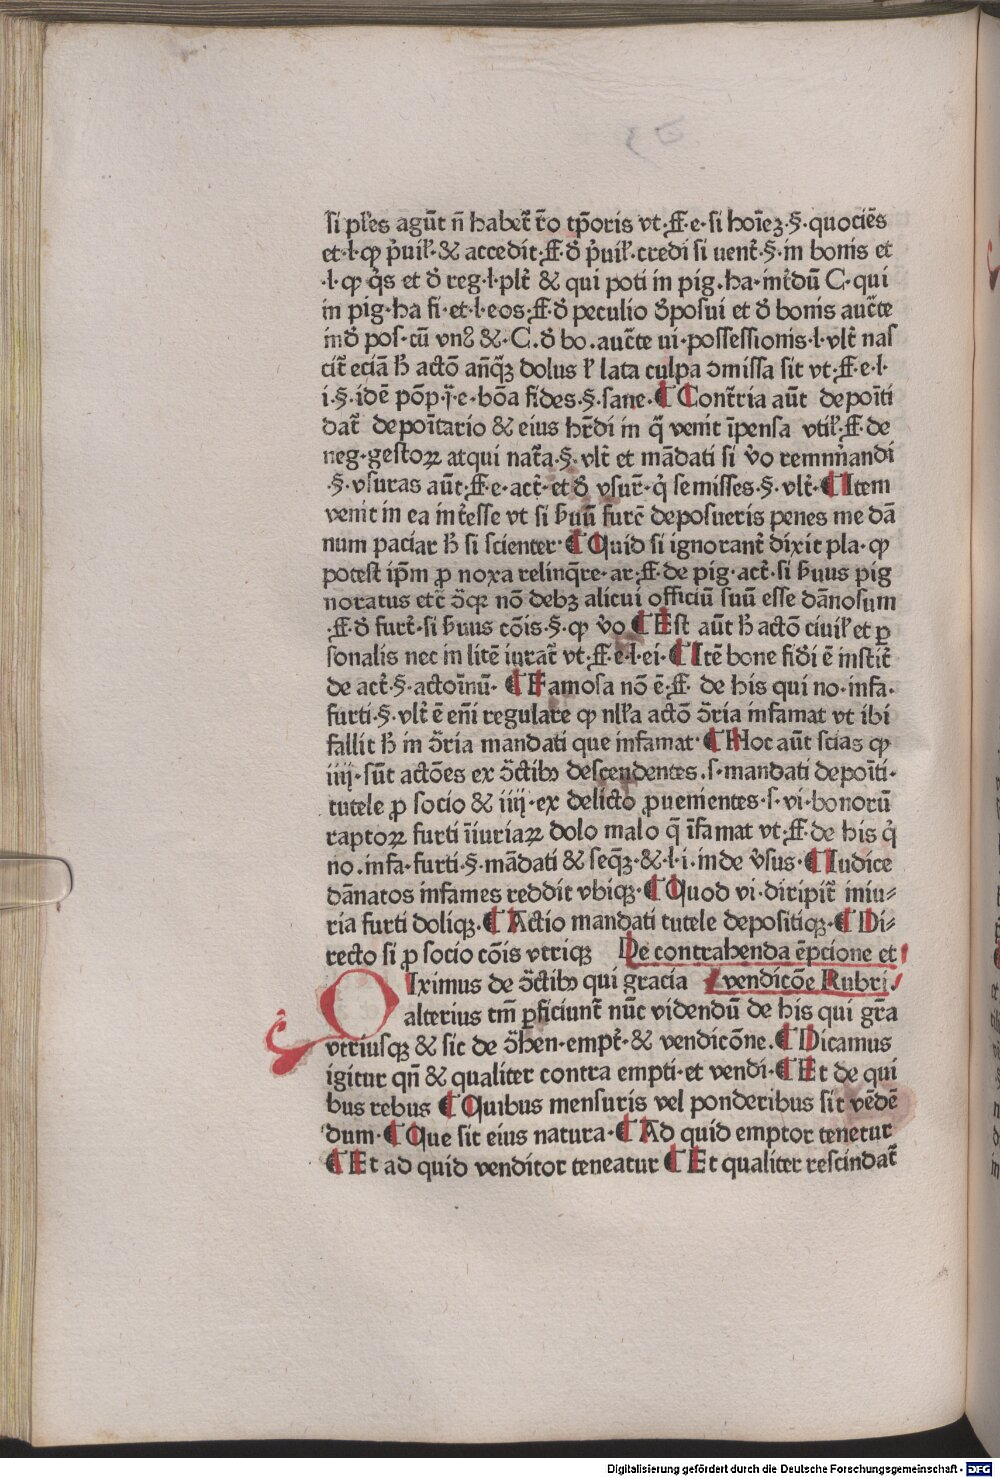 si ples agūt n̄ habet̄ r̄o tp̄oris vt·ff·e·si hoīez·§·quociēs
et·l·qp p̉uil̉·& accedit·ff·ꝺ̉ p̉uil̉·credi si uent̉·§·in bonis et
·l·qp q̉s et ꝺ̉ reg·l·plt̉ & qui poti in pig·ha·int̉dū C·qui
in pig·ha fi·et·l·eos·ff·ꝺ̉ peculio ꝺ̉posui et ꝺ̉ bonis auc̄te
inꝺ̉ pos·cū vnꝰ &·C·ꝺ̉ bo·auc̄te ui·possessionis·l·vlt̉ nas
cit̄ eciā h̄ actō an̄q̄ꝫ dolus l̉ lata culpa ꝯmissa sit vt·ff·e·l·
i·§·idē pōp·ī·e·bōa fides·§·sane·¶ Cont̄ria aūt depoīti
dat̄ depoītario & eius hr̄di in q̄ venit īpensa vtil̉·ff·de
neg·gestoꝝ atqui nat̄a·§·vlt̉ et mādati si v̉o remun̄andi
·§·vsuras aūt·ff·e·act̉·et ꝺ̉ vsur̄·q̉ semisses·§·vlt̉·¶ Item
venit in ea int̉esse vt si ẜuū furē deposueris penes me dā
num paciar h̄ si scienter·¶ Quid si ignorant̉ dixit pla·qp
potest ip̄m ꝓ noxa relinq̄re·ar·ff·de pig·act̉·si ẜuus pig
noratus etc̄ ꝯ̄qꝛ nō debꝫ alicui officiū suū esse dānosum
·ff·ꝺ̉ furt̉·si ẜuus cōis·§·qp v̉o ¶ Est aūt h̄ actō ciuil̉ et ꝑ
sonalis nec in litē iurat̄ vt·ff·e·l·ei·¶ Itē bone fiꝺ̉i ē instit̄
de act̉·§·actoīnū· ¶ Famosa nō ē·ff· de his qui no·infa·
furti·§·vlt̉ ē en̄i regulare qp nll̉a actō ꝯ̄ria infamat vt ibi
fallit h̄ in ꝯ̄ria mandati que infamat·¶ Hoc aūt scias qp
iiij·sūt actōes ex ꝯ̄ctibꝰ descendentes·s·mandati depoīti·
tutele ꝓ socio & iiij·ex delicto ꝓuenientes·s·vi·bonorū
raptoꝝ furti īiuriaꝝ dolo malo q̄ īfamat vt·ff·de his q̉
no·infa·furti·§·mādati & seq̄ꝫ·&·l·i·inde v̉sus·¶ Iudice
dānatos infames reddit vbiqꝫ·¶ Quod vi·diripit̄ iniu⸗
ria furti doliqꝫ·¶ Actio mandati tutele depositiqꝫ·¶ Di⸗
recto si ꝓ socio cōis vtriqꝫ De contrahenda ēpcione et
DIximus de ꝯ̄ctibꝰ qui gracia vendicōe Rubri·
alterius tm̄ ꝑficiunt̄ nūc videndū de his qui gr̄a
vtriusqꝫ & sic de ꝯ̄hen·empt̉·& vendicōne·¶ Dicamus
igitur qn̄ & qualiter contra empti·et vendi·¶ Et de qui
bus rebus ¶ Quibus mensuris vel ponderibus sit vēdē
dum·¶ Que sit eius natura·¶ Ad quid emptor tenetur
¶ Et ad quid venditor teneatur ¶ Et qualiter rescindat̄
Digitalisierung gefördert durch die Deutsche Forschungsgemeinschaft - DFG